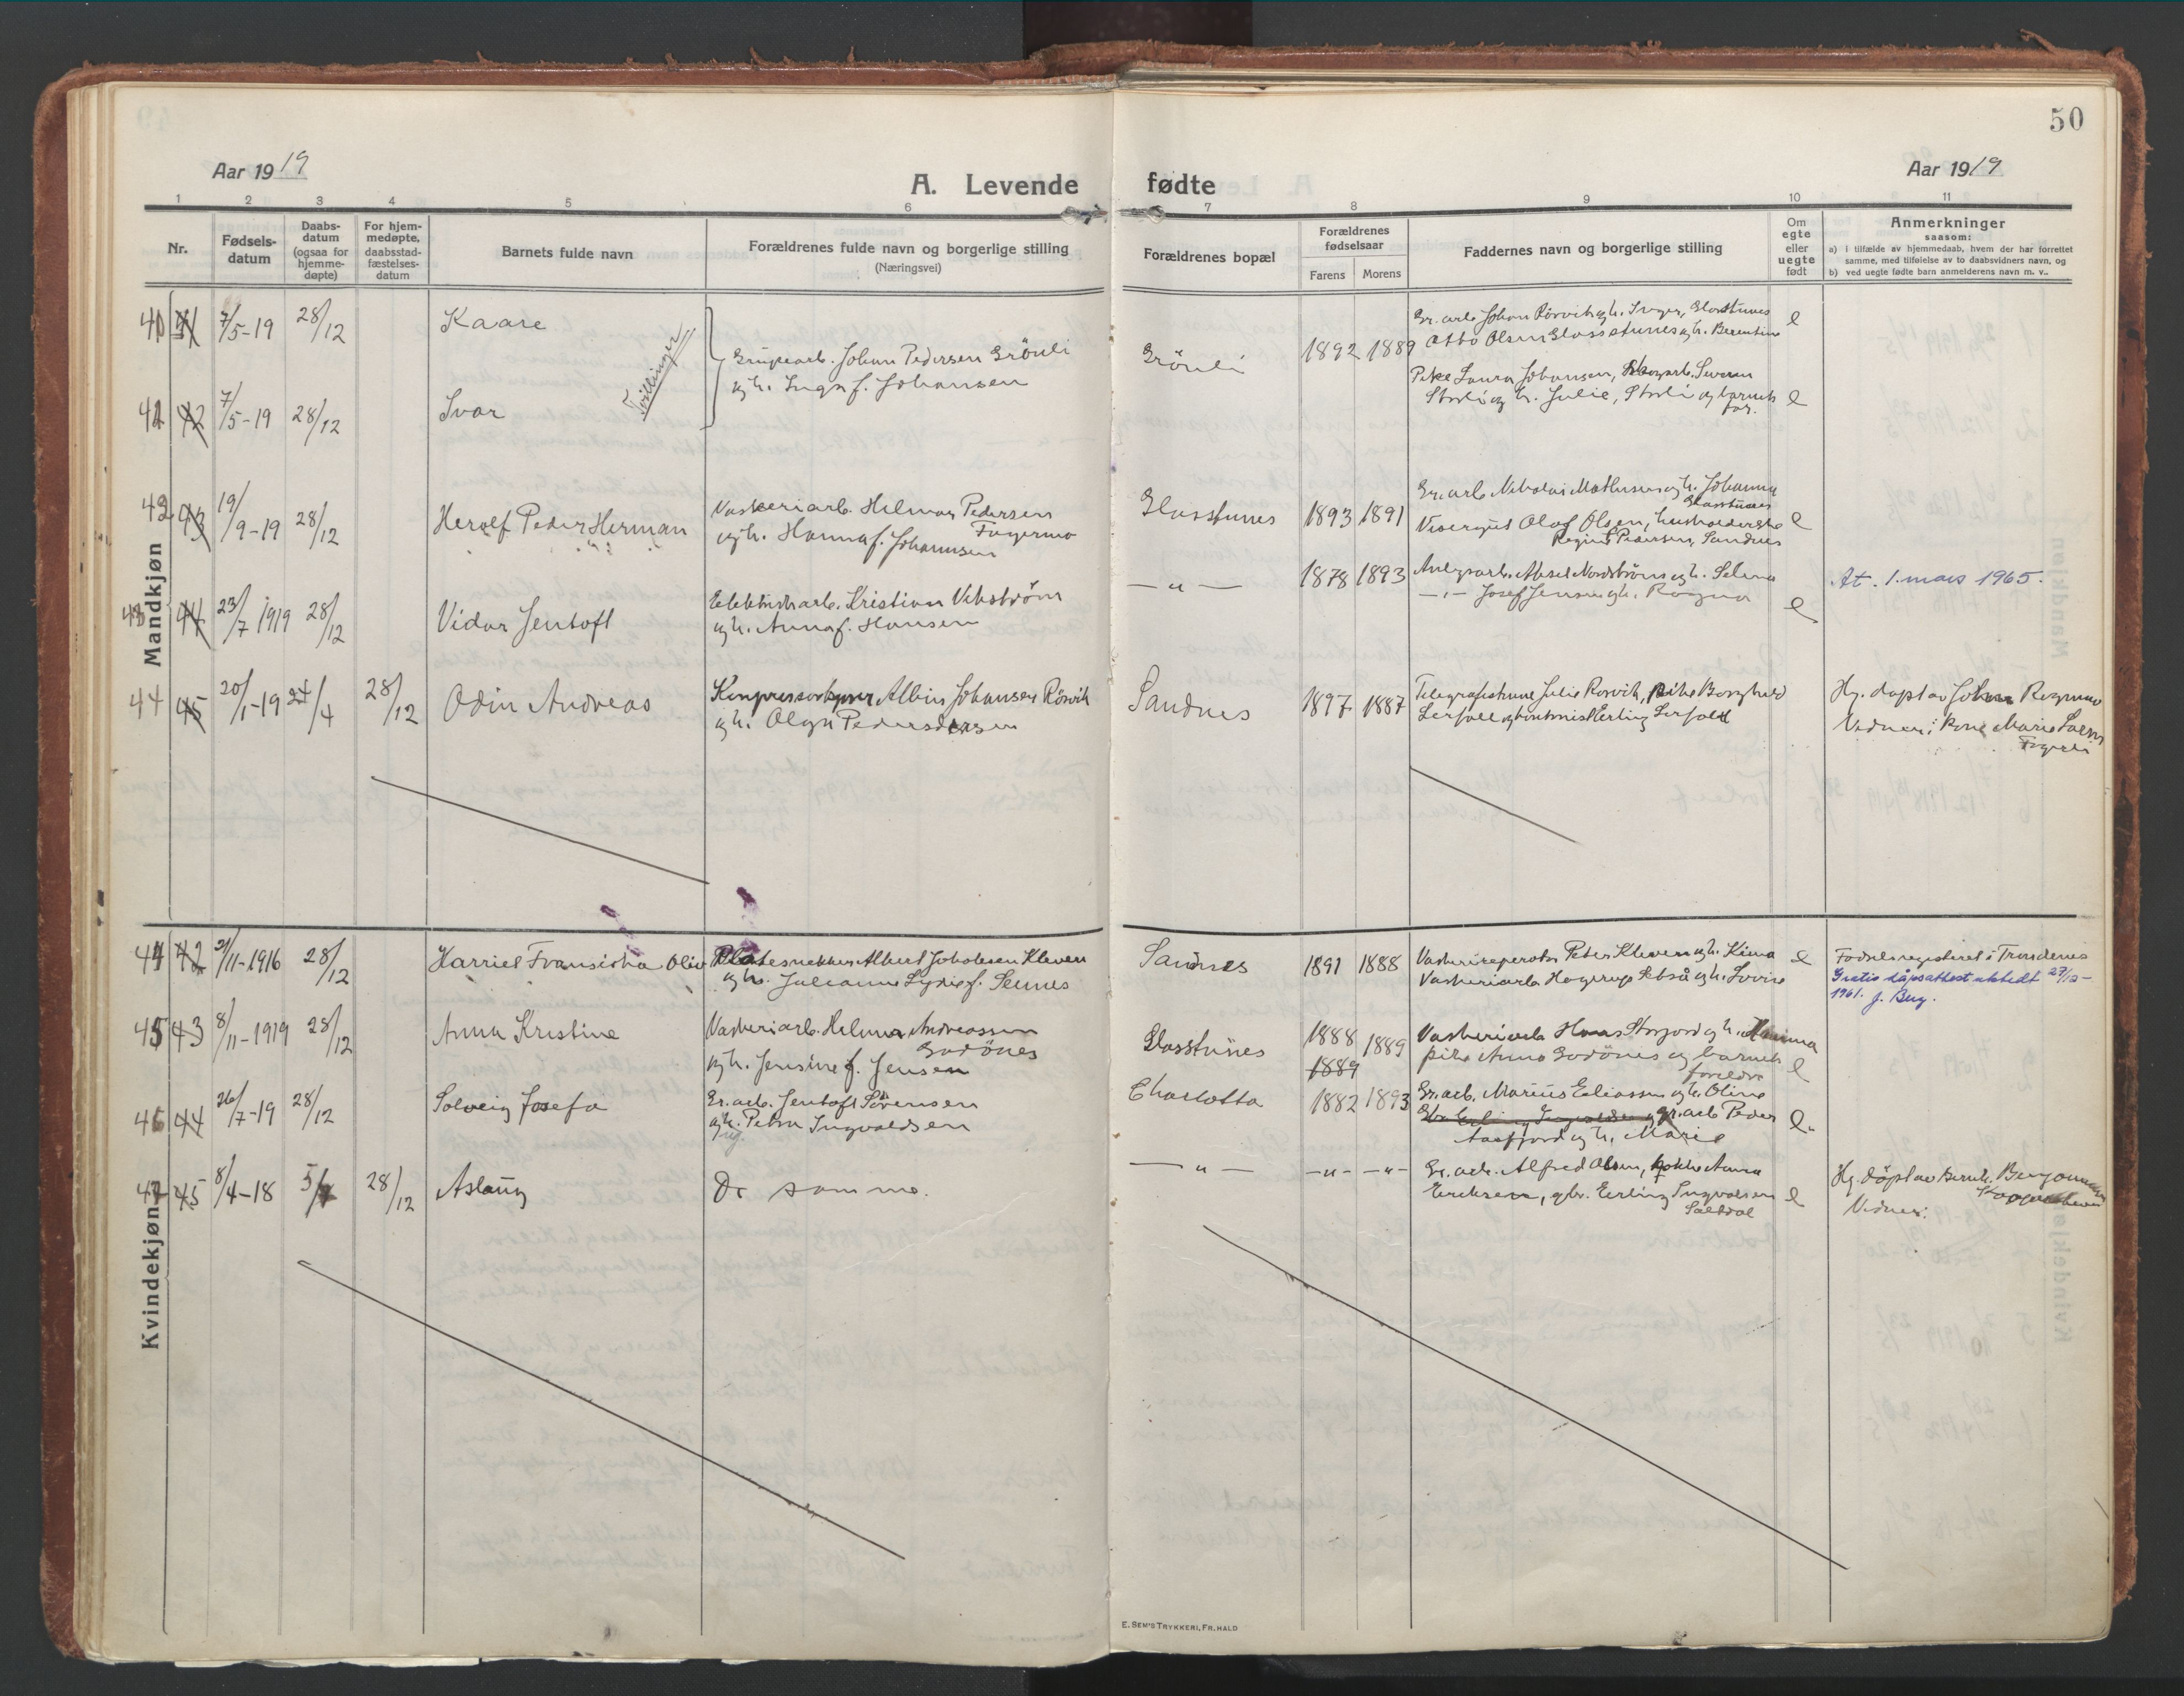 50
Aar 1919
A. Levende fødte
Aar 1919
1 2 3 4 5 6 7 8 9 10 11
Nr.
Fødsels-
datum
Daabs-
datum
(ogsaa for
hjemme-
døpte)
For hjem-
medøpte,
daabsstad-
fæstelses-
datum
Barnets fulde navn
Forældrenes fulde navn og borgerlige stilling
(Næringsvei)
Forældrenes bopæl
Forældrenes
fødselsaar
Farens Morens
Faddernes navn og borgerlige stilling
Om
egte
eller
uegte
født
Anmerkninger
saasom:
a) i tilfælde av hjemmedaab, hvem der har forrettet
samme, med tilføielse av to daabsvidners navn, og
b) ved uegte fødte barn anmelderens navn m. v..
Mandkjøn
40 41 7/5-19 28/12 Kaare
Tvillinger
Grubearb. Johan Pedersen Grönli
og h. Inga f. Johansen
Grönli 1892 1889
Gr. arb. Johan Rörvik og h. Inger, Glasstunes
Otto Olsen Glasstunes og h. Berentine
e
41 42 7/5-19 28/12 Ivar
Pike Laura Johansen, Skogarb. Severin
Storli og h. Julie, Storli og barnets
far.
e
42 43 19/9-19 28/12 Herolf Peder Herman
Vaskeriarb. Hilmar Pedersen
Fagermo
og h. Hanna f. Johannsen
Glasstunes 1893 1891
Gr. arb. Nikolai Mathisen og h. Johanna
Glasstunes
Visergut Olaf Olsen, husholderske
Regine Pedersen, Sandnes
e
43 44 23/7 1919 28/12 Vidar Jentoft
Elektrisk arb. Kristian Vikström
og h. Anna f. Hansen
— „ — 1878 1893
Anlegsarb. Aksel Nordström og h. Selma
— „ — Josef Jensen og h. Ragna
e
At. 1. mars 1965.
44 45 20/1-19 24/4 28/12 Odin Andreas
Kompressorkjører Albin Johansen Rörvik
og h. Olga Pedersdersen
Sandnes 1897 1887
Telegrafistinne Julie Rørvik, Pike Borghild
Lerfall og kontorist Erling Lerfald
Hj. døpt av Johan
Vidner: Kone Marie
Kvindekjøn
44 42 21/11-1916 28/12 Harriet Fransiska Oliv
Platesnekker Albert Jakobsen Kleven
og h. Julianne Lydie f. Seines
Sandnes 1891 1888
Vaskerireperatør Peter Kleven og h. Kima
Vaskeriarb. Hagerup Setså og h. Lovise
e
Fødselsregistrert i Trondenes
Gratis dåpsattest utstedt 27/12-
1961. J. Berg.
45 43 8/11-1919 28/12 Anna Kristine
Vaskeriarb. Hilmar Andreassen
Godönes
og h. Jensine f. Jensen
Glasstunes 1888 1889
1889
Vaskeriarb. Hans Storjord og h. Hanna
pike Anna Godönes og barnets
foreldre
e
46 44 26/7-19 28/12 Solveig Josefa
Gr. arb. Jentoft Sörensen
og h. Petra Ingvaldsen
Charlotta 1882 1893
Gr. arb. Marius Eliassen og h. Oline
Gbr. Erling Ingvaldsen og gr. arb. Peder
Aasfjord og h. Marie
e
47 45 8/4-18 5/7 28/12 Aslaug
De samme.
— „ — — „ — — „ —
Gr. arb. Alfred Olsen, kokke Anna
Eriksen, gbr. Erling Ingvaldsen
Saltdal
e
Hj. döpt av Bernh.
Vidner:
E. SEM'S TRYKKERI, FR. HALD